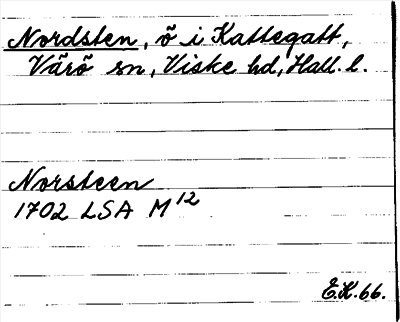 Nordsten, ö i Kattegatt,
Värö sn, Viske hd, Hall. l.
Norsteen
1702 LSA M 12
E.K. 66.